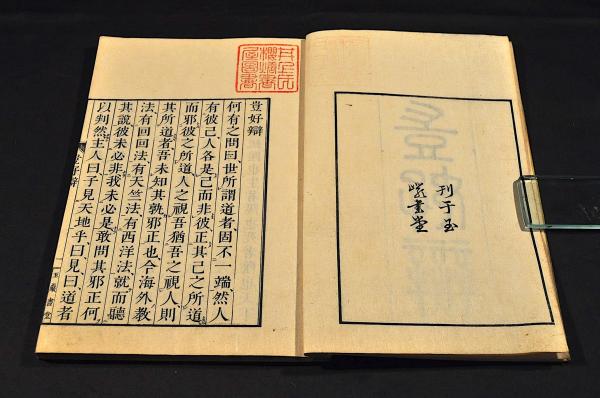 刊于玉
巖書堂
井上氏
屋圖書
豈好辯
何有之問曰世所謂道者固不一端然人
有彼己人各是己而非彼正其己之所道
而邪彼之所道人之視吾猶吾之視人則
其所道者吾未知其孰邪正也今海外教
法有回回法有天竺法有西洋法就而聽
其說彼未必非我未必是敢問其邪正何
以判然主人曰子見天地乎曰見曰道者
豈好辯
一
玉巖書堂